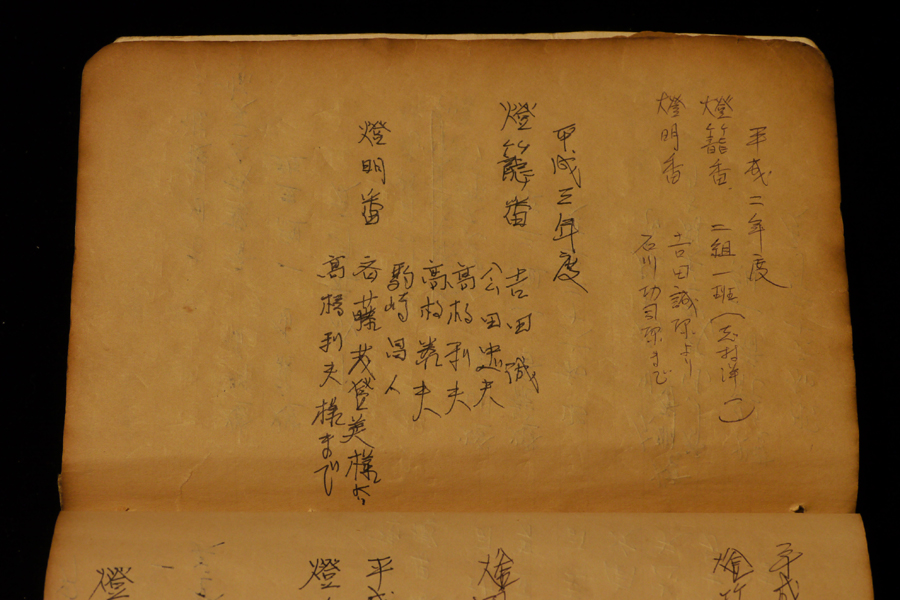 平成二年度
燈籠番 二組一班(志村洋一)
燈明番 吉田誠様より
石川功司様まで
平成三年度
燈籠番 吉田誠
公田忠夫
高橋利夫
高枚義夫
駒崎昌人
燈明番 斉藤茂登美様から
高橋利夫様まで
平成
燈
燈
平成
燈
燈